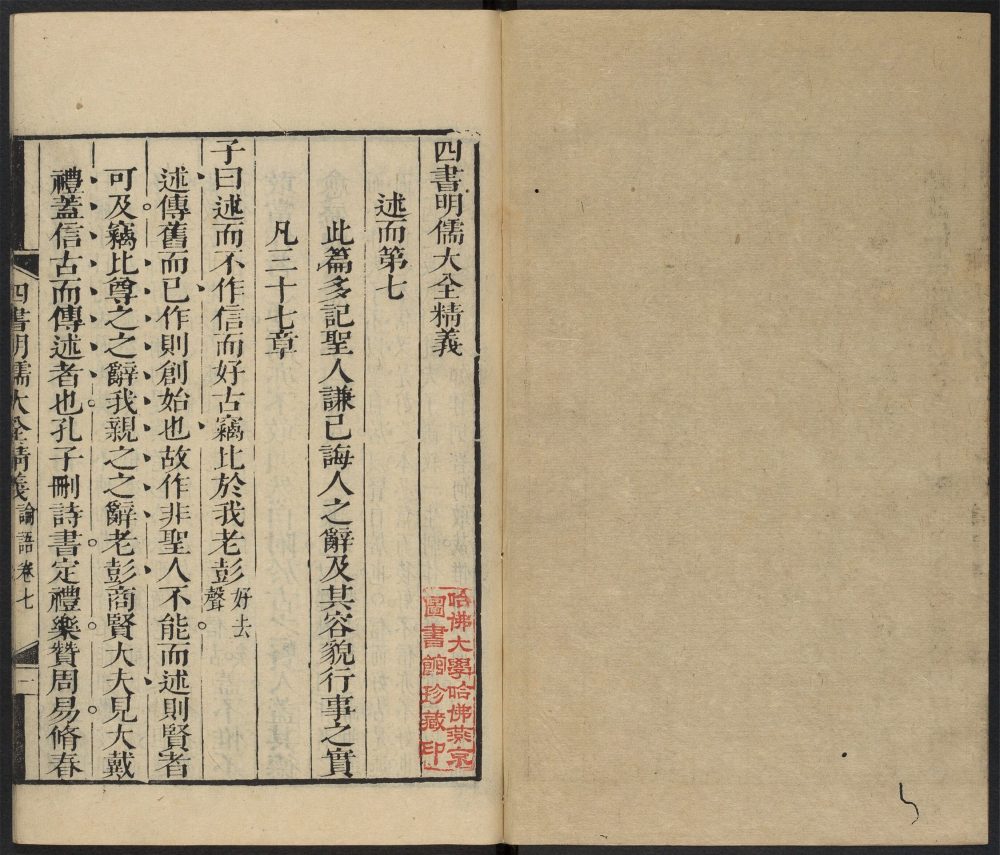 四書明儒大全精義
述而第七
此篇多記聖人謙已誨人之辭及其容貌行事之實
凡三十七章
子曰述而不作信而好古竊比於我老彭好去聲
述傳舊而已作則創始也故作非聖人不能而述則賢者
可及竊比尊之之辭我親之之辭老彭商賢大夫見大戴
禮蓋信古而傳述者也孔子刪詩書定禮樂贊周易脩春
四書明儒大全精義 論語卷七 一
哈佛大學哈佛燕京
圖書館珍藏印